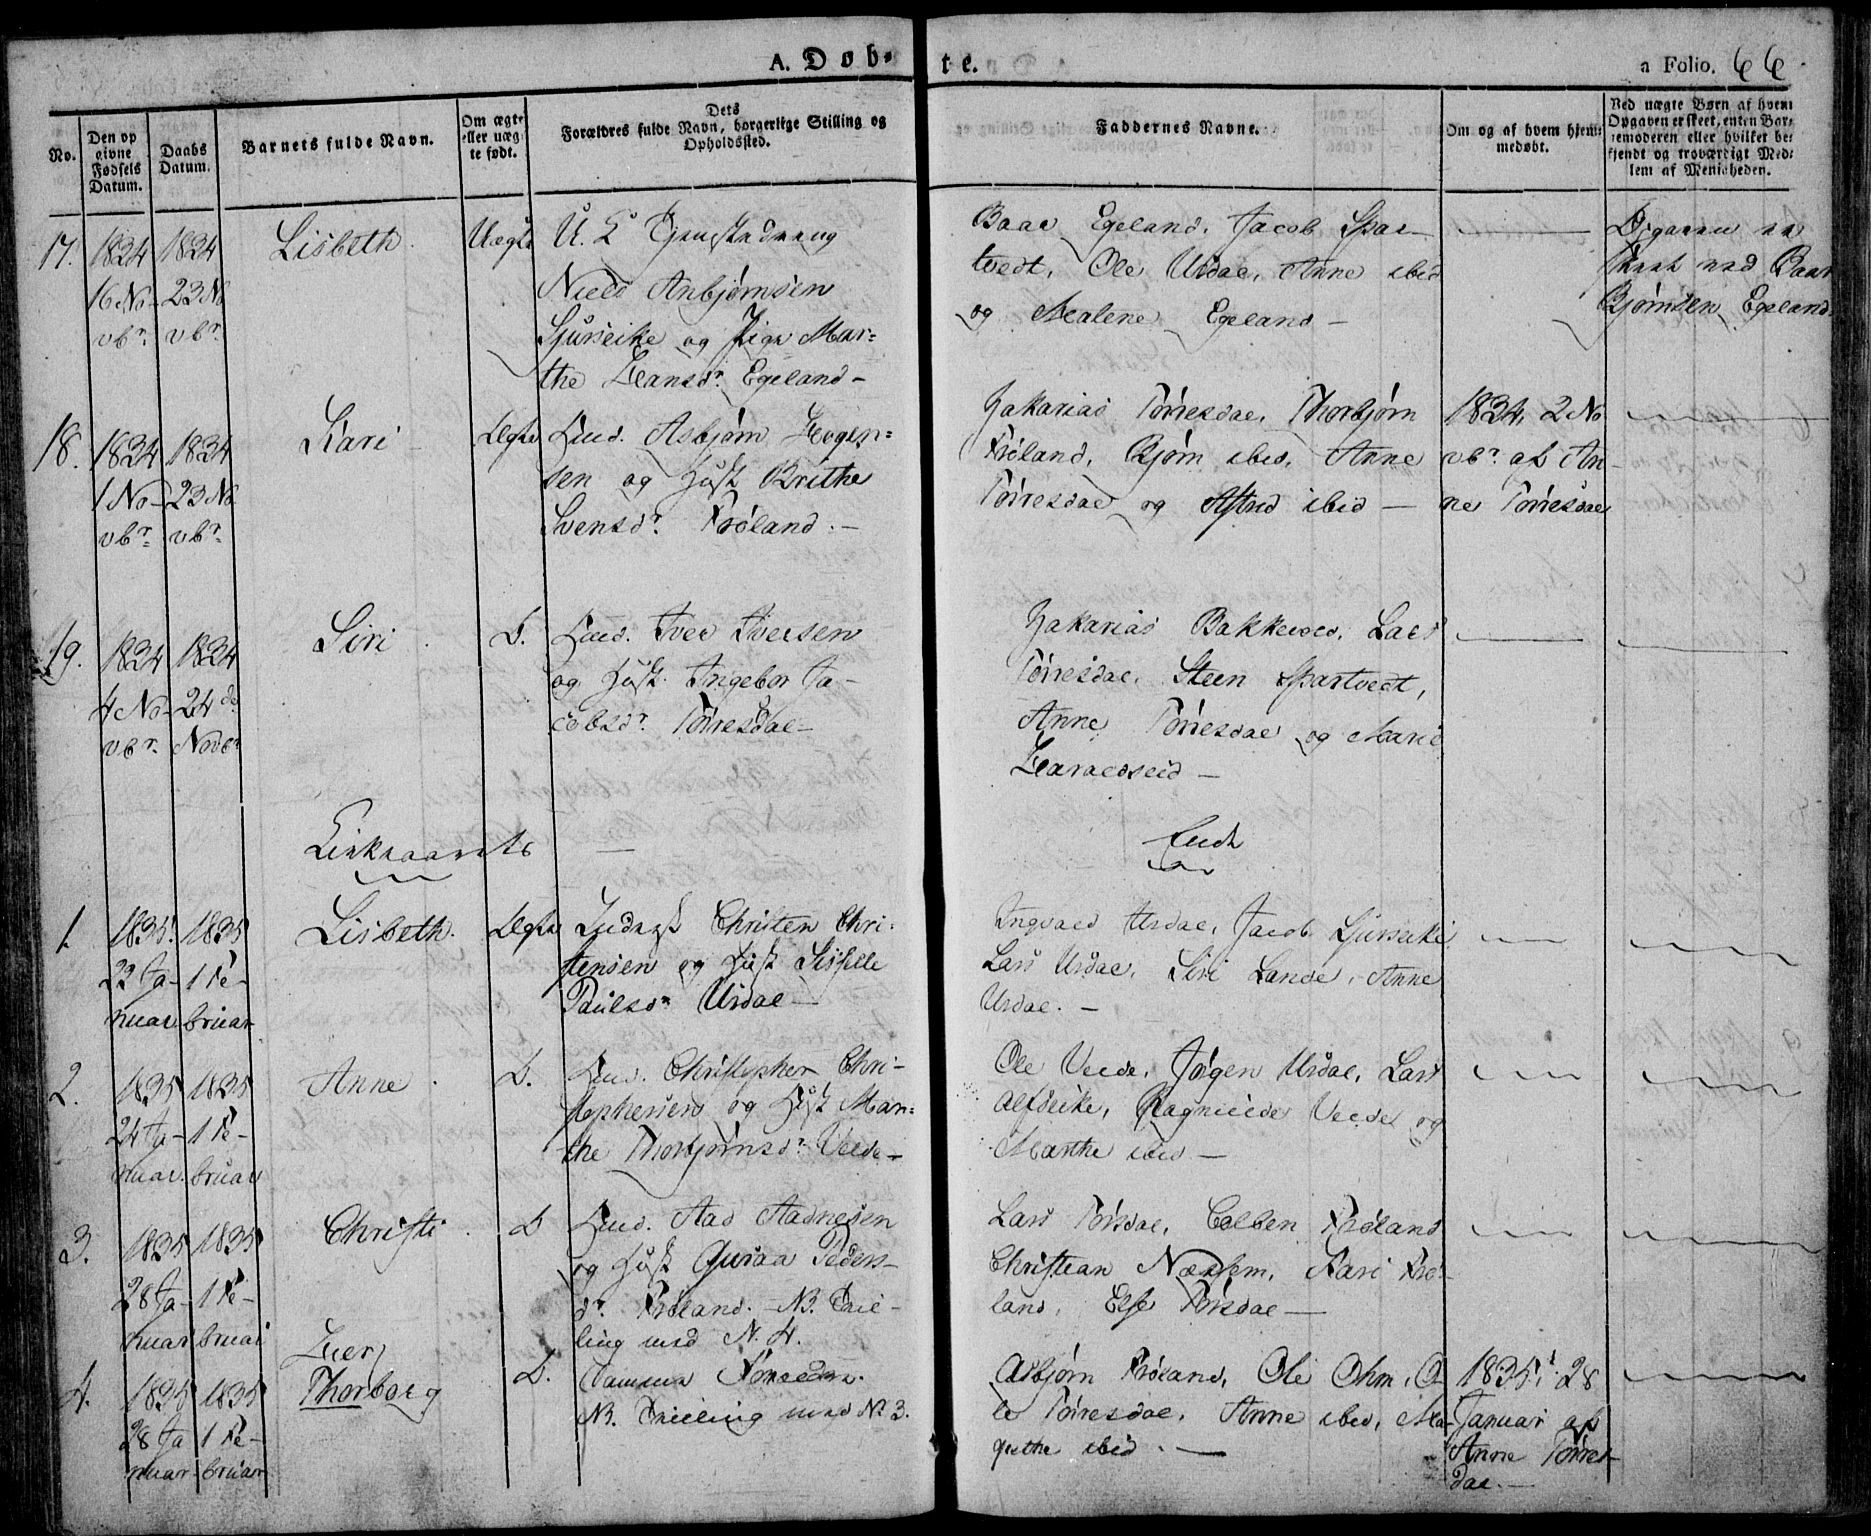 A. Døb-
te.
a Folio. 66
No.
Den op
givne
Fødsels
Datum.
Daabs
Datum.
Barnets fulde Navn.
Om ægte
eller uæg-
te født.
Dets
Forældres fulde Navn, borgerlige Stilling og
Opholdssted.
Faddernes Navne.
Om og af hvem hjem-
medøbt.
Ved uægte Børn af hvem
Opgaven er skeet, enten Bar-
nemoderen eller hvilket be-
kjendt og troværdigt Med-
lem af Menigheden.
17.
1834
16 No-
vbr.
1834
23 No
vbr.
Lisbeth
Uægte
U. E.
Niels Anbjørnsen
og Pige Mar-
the Egeland -
Baar Egeland, Jacob Spar-
tvedt, Ole Usdal, Anne ibid
og Malene Egeland -
Opgaven
skeet ved Baar
Bjørnsen Egeland
18.
1834
1 No-
vbr.
1834
23 No
vbr.
Kari
Ægte
Asbjørn
sen og Hust Brithe
Svensdr. Frøland. -
Zakarias Torresdal, Thorbjørn
Frøland, Bjørn ibid, Anne
Torresdal og Astrid ibid -
1834, 2 No
vbr. af An-
ne Torresdal
19.
1834
4 No-
vbr.
1834
24de
Novbr
Siri
D.
Iver Iversen
og Hust. Ingebor Ja-
cobsdr. Torresdal -
Zakarias Lars
Torresdal, Steen Spartvedt,
Anne Torresdal og Marie
Haraldseid -
Kirkeaarets
Ende
1.
1835.
22 Ja-
nuar
1835
1 Fe-
bruar
Lisbeth.
Ægte
Christen Chri-
stensen og Hust Sisselle
Paulsdr Usdal -
Ingvald Usdal, Jacob
Lars Usdal, Siri Lande, Anne
Usdal. -
2.
1835
24 Ja-
nuar
1835
1 Fe-
bruar
Anne
D.
Christopher Chri-
stophersen og Hust Mar-
the Thorbjørnsdr. Velde -
Ole Velde, Jørgen Usdal, Lars
Alfseike, Ragnilde Velde og
Marthe ibid -
3.
1835
28 Ja-
nuar
1835
1 Fe-
bruar
Christi
D
Aad Aadnesen
og Hust Guraa Peders-
dr. Frøland. - NB. Tvil-
ling med N. 4.
Lars Torsdal, Colben Frøland
Christian Næssem, Kari Frø-
land, Else Torsdal -
4.
1835
28 Ja
nuar
1835
1 Fe-
bruar
Thorborg
D.
Samme Forældre.
NB. Tvilling med N 3.
Asbjørn Frøland, Ole Ohm, O
le Torresdal, Anne ibid, Ma-
grethe ibid. -
1835, 28
Januar af
Anne Torres-
dal. -